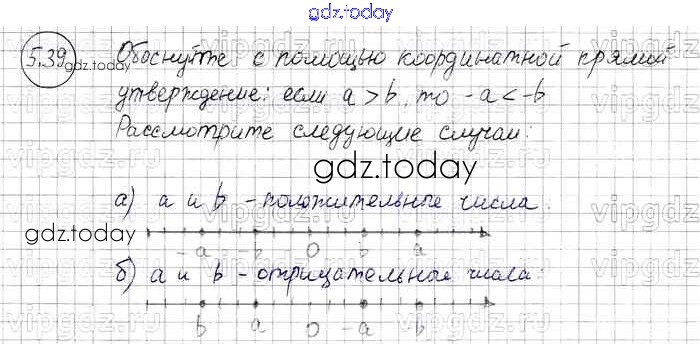 gdz.today
5.39 Обоснуйте с помощью координатной прямой
gdz.today
утверждение: если a > b, то -a < -b
Рассмотрите следующие случаи:
vipgdz.ru
gdz.today
а) a и b - положительные числа.
gdz.today
-a -b 0 b a
б) a и b - отрицательные числа:
b a 0 -a -b
vipgdz.ru